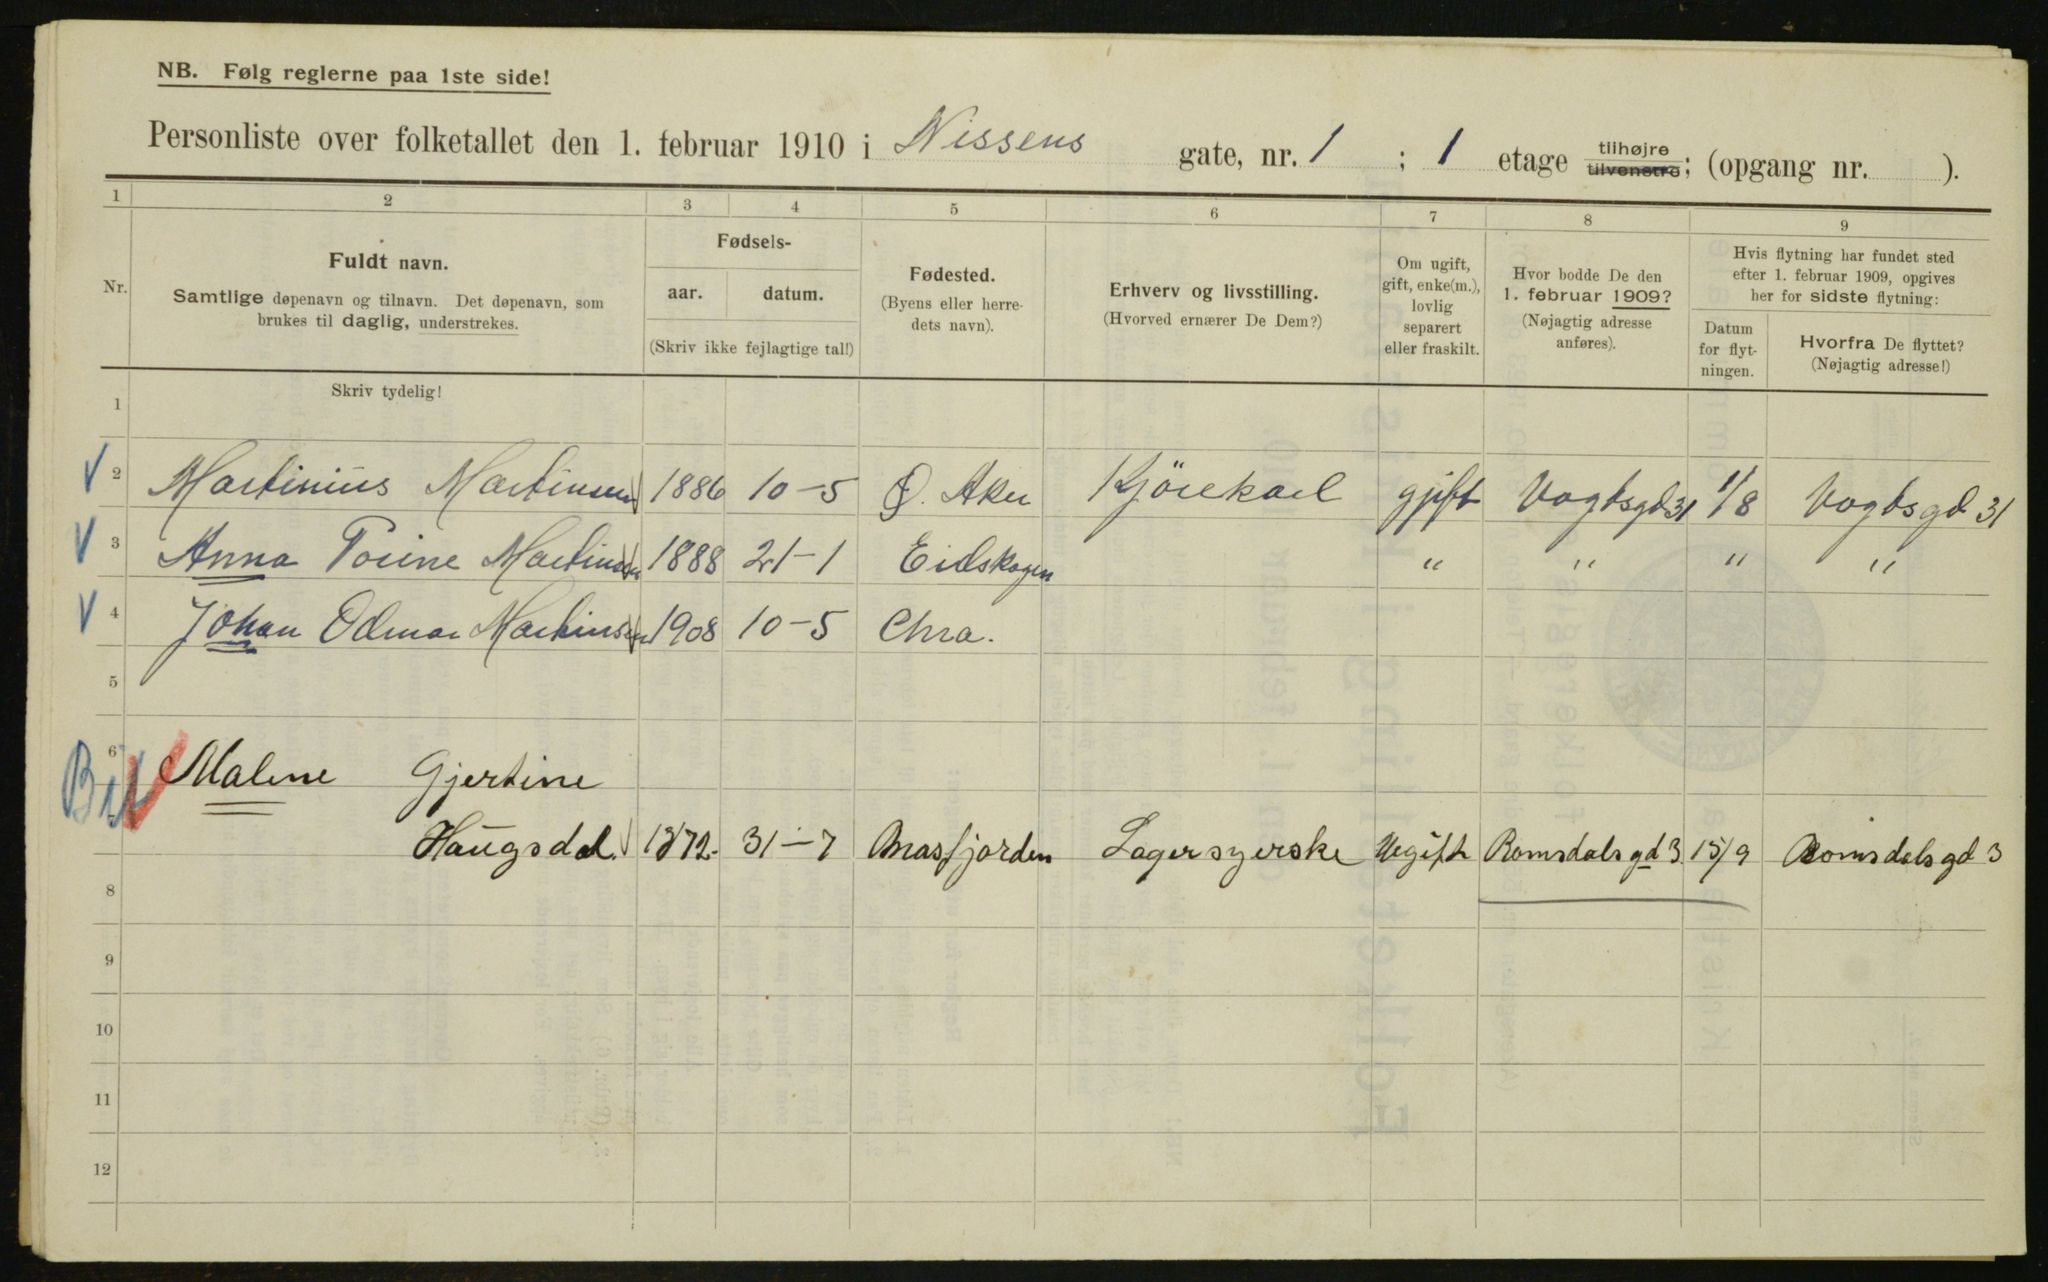 NB. Følg reglerne paa 1ste side!
Personliste over folketallet den 1. februar 1910 i Nissens gate, nr. 1 ; 1 etage tilhøjre tilvenstre; (opgang nr. ).
1 2 3 4 5 6 7 8 9
Nr.
Fuldt navn.
Samtlige døpenavn og tilnavn. Det døpenavn, som
brukes til daglig, understrekes.
Fødsels-
aar. datum.
(Skriv ikke fejlagtige tal!)
Fødested.
(Byens eller herre-
dets navn).
Erhverv og livsstilling.
(Hvorved ernærer De Dem?)
Om ugift,
gift, enke(m.),
lovlig
separert
eller fraskilt.
Hvor bodde De den
1. februar 1909?
(Nøjagtig adresse
anføres).
Hvis flytning har fundet sted
efter 1. februar 1909, opgives
her for sidste flytning:
Datum
for flyt-
ningen.
Hvorfra De flyttet?
(Nøjagtig adresse!)
Skriv tydelig!
1
2 Martinius Martinsen 1886 10-5 Ø. Aker Kjörekarl gift Vogtsgd 31 1/8 Vogtsgd 31
3 Anna Martinsen 1888 21-1 Eidskogen " " " "
4 Johan Odmar Martinsen 1908 10-5 Chra.
5
6 Malene Gjertine
Haugsdal. 1872. 31-7 Lagersyerske Ugift Romsdalsgd 3. 15/9 Romsdalsgd 3
8
9
10
11
12